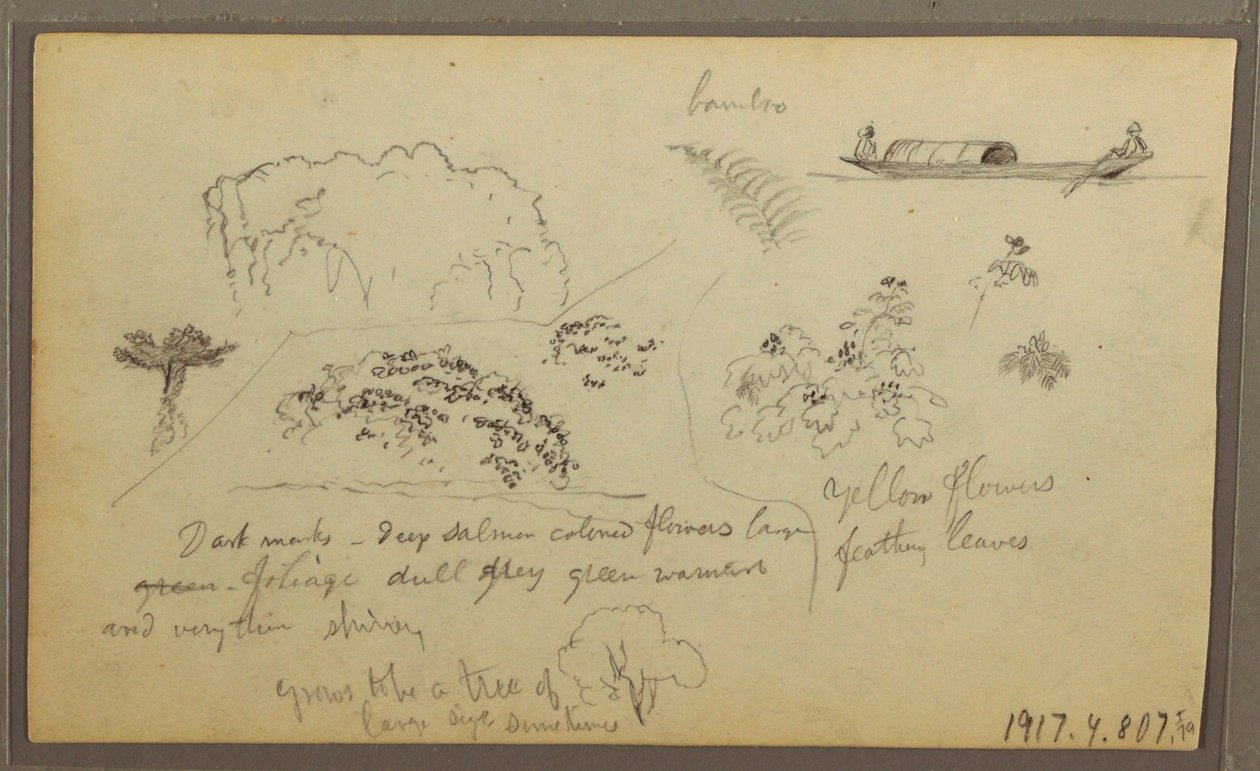 bamboo
yellow flowers
feathery leaves
Dark marks - Deep salmon colored flowers large
green - foliage dull grey green
and very thin
grows to be a tree of
large size sometimes
1917.4.807.